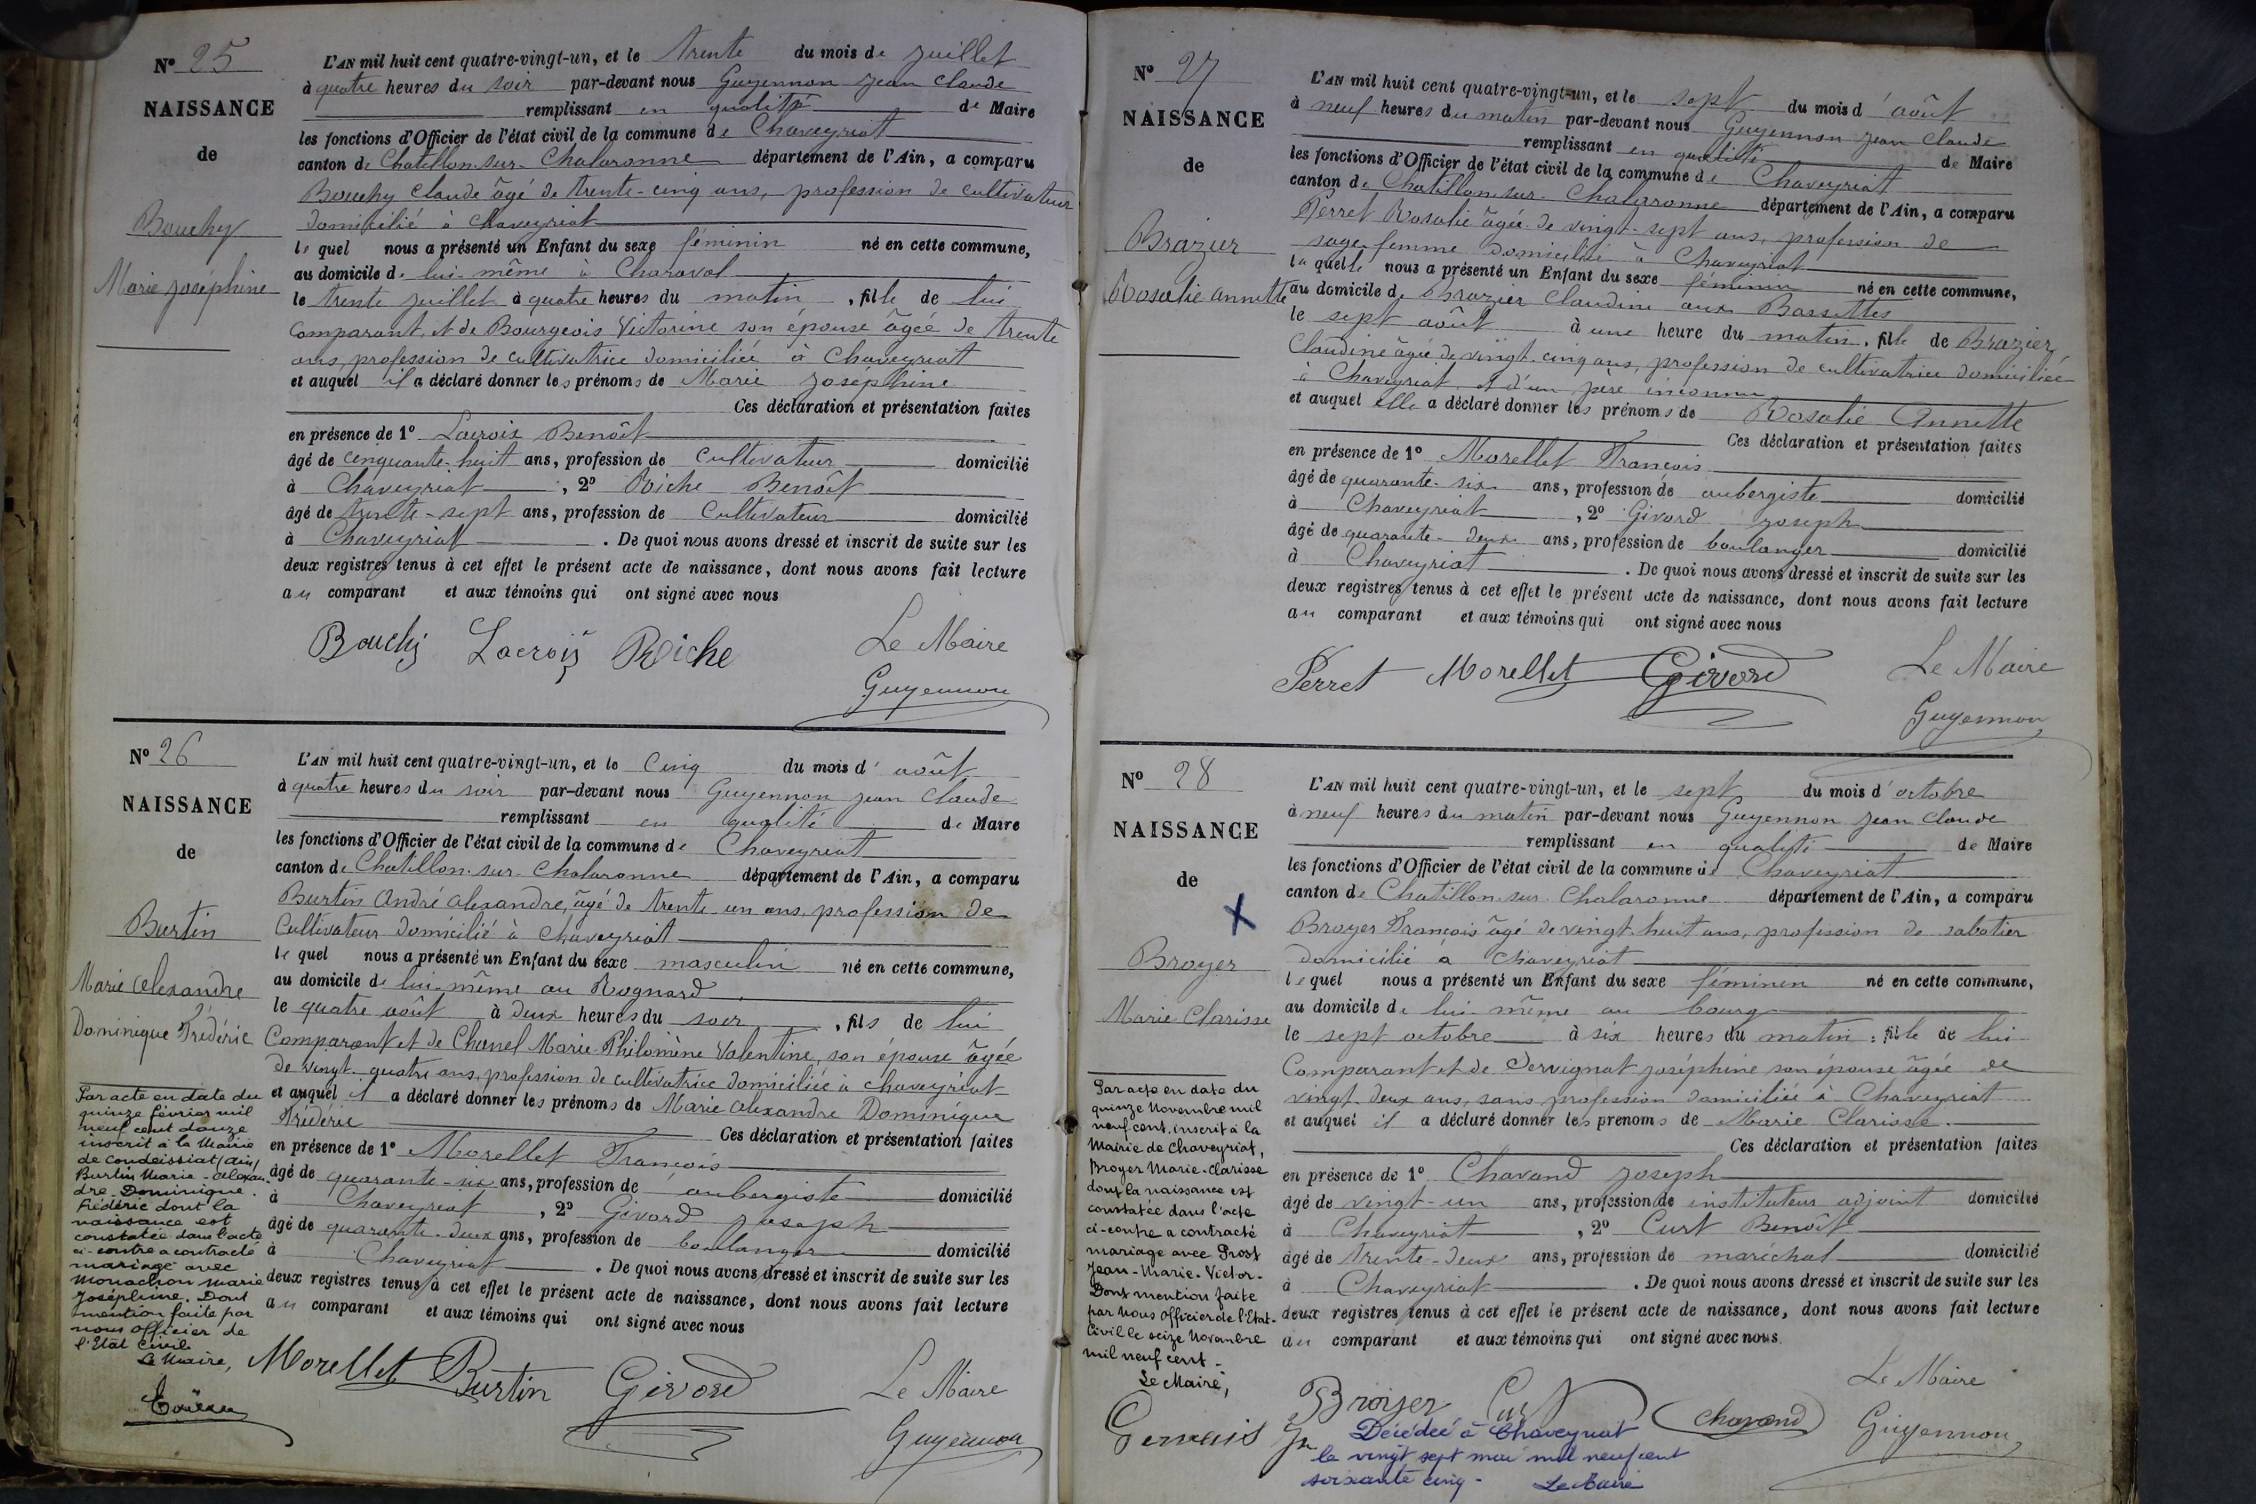 Nº 25
NAISSANCE
de
Bouchy
Marie Joséphine
L'AN mil huit cent quatre-vingt-un, et le trente du mois de juillet
à quatre heures du soir par-devant nous Guyennon Jean Claude
remplissant en qualité de Maire
les fonctions d'Officier de l'état civil de la commune de Chaveyriat
canton de Chatillon-sur-Chalaronne département de l'Ain, a comparu
Bouchy Claude âgé de trente-cinq ans, profession de cultivateur
domicilié à Chaveyriat
lequel nous a présenté un Enfant du sexe féminin né en cette commune,
au domicile de lui-même à Charavol
le trente juillet à quatre heures du matin, fille de lui
comparant, et de Bourgeois Victorine son épouse âgée de trente
ans, profession de cultivatrice domiciliée à Chaveyriat
et auquel il a déclaré donner les prénoms de Marie Joséphine
Ces déclaration et présentation faites
en présence de 1º Lacroix Benoît
âgé de cinquante-huit ans, profession de cultivateur domicilié
à Chaveyriat, 2º Riche Benoît
âgé de trente-sept ans, profession de cultivateur domicilié
à Chaveyriat. De quoi nous avons dressé et inscrit de suite sur les
deux registres tenus à cet effet le présent acte de naissance, dont nous avons fait lecture
au comparant et aux témoins qui ont signé avec nous
Bouchy Lacroix Riche Le Maire
Guyennon
Nº 26
NAISSANCE
de
Burtin
Marie Alexandre
Dominique Frédéric
L'AN mil huit cent quatre-vingt-un, et le cinq du mois d'août
à quatre heures du soir par-devant nous Guyennon Jean Claude
remplissant en qualité de Maire
les fonctions d'Officier de l'état civil de la commune de Chaveyriat
canton de Chatillon-sur-Chalaronne département de l'Ain, a comparu
Burtin André Alexandre, âgé de trente-un ans, profession de
cultivateur domicilié à Chaveyriat
lequel nous a présenté un Enfant du sexe masculin né en cette commune,
au domicile de lui-même au Rognard
le quatre août à deux heures du soir, fils de lui
comparant et de Chanel Marie-Philomène Valentine, son épouse âgée
de vingt-quatre ans, profession de cultivatrice domiciliée à Chaveyriat
et auquel il a déclaré donner les prénoms de Marie Alexandre Dominique
Frédéric Ces déclaration et présentation faites
en présence de 1º Morellet François
âgé de quarante-six ans, profession de aubergiste domicilié
à Chaveyriat, 2º Givord Joseph
âgé de quarante-deux ans, profession de boulanger domicilié
à Chaveyriat. De quoi nous avons dressé et inscrit de suite sur les
deux registres tenus à cet effet le présent acte de naissance, dont nous avons fait lecture
au comparant et aux témoins qui ont signé avec nous
Par acte en date du
quinze février mil
neuf cent douze
inscrit à la Mairie
de Condeissiat (Ain)
Burtin Marie-Alexan-
dre-Dominique-
Frédéric dont la
naissance est
constatée dans l'acte
ci-contre a contracté
mariage avec
Monachon Marie
Joséphine. Dont
mention faite par
nous officier de
l'Etat Civil
Le Maire,
Morellet Burtin Givord Le Maire
Guyennon
Nº 27
NAISSANCE
de
Brazier
Rosalie Annette
L'AN mil huit cent quatre-vingt-un, et le sept du mois d'août
à neuf heures du matin par-devant nous Guyennon Jean Claude
remplissant en qualité de Maire
les fonctions d'Officier de l'état civil de la commune de Chaveyriat
canton de Chatillon-sur-Chalaronne département de l'Ain, a comparu
Perret Rosalie âgée de vingt-sept ans, profession de
sage-femme domiciliée à Chaveyriat
laquelle nous a présenté un Enfant du sexe féminin né en cette commune,
au domicile de Brazier Claudine aux Bassettes
le sept août à une heure du matin, fille de Brazier
Claudine âgée de vingt-cinq ans, profession de cultivatrice domiciliée
à Chaveyriat et d'un père inconnu
et auquel elle a déclaré donner les prénoms de Rosalie Annette
Ces déclaration et présentation faites
en présence de 1º Morellet François
âgé de quarante-six ans, profession de aubergiste domicilié
à Chaveyriat, 2º Givord Joseph
âgé de quarante-deux ans, profession de boulanger domicilié
à Chaveyriat. De quoi nous avons dressé et inscrit de suite sur les
deux registres tenus à cet effet le présent acte de naissance, dont nous avons fait lecture
au comparant et aux témoins qui ont signé avec nous
Perret Morellet Givord Le Maire
Guyennon
Nº 28
NAISSANCE
de
X
Broyer
Marie Clarisse
L'AN mil huit cent quatre-vingt-un, et le sept du mois d'octobre
à neuf heures du matin par-devant nous Guyennon Jean Claude
remplissant en qualité de Maire
les fonctions d'Officier de l'état civil de la commune de Chaveyriat
canton de Chatillon-sur-Chalaronne département de l'Ain, a comparu
Broyer François âgé de vingt-huit ans, profession de sabotier
domicilié à Chaveyriat
lequel nous a présenté un Enfant du sexe féminin né en cette commune,
au domicile de lui-même au bourg
le sept octobre à six heures du matin : fille de lui
comparant et de Servignat Joséphine son épouse âgée de
vingt-deux ans, sans profession domiciliée à Chaveyriat
et auquel il a déclaré donner les prénoms de Marie Clarisse.
Ces déclaration et présentation faites
en présence de 1º Chavand Joseph
âgé de vingt-un ans, profession de instituteur adjoint domicilié
à Chaveyriat, 2º Curt Benoît
âgé de trente-deux ans, profession de maréchal domicilié
à Chaveyriat. De quoi nous avons dressé et inscrit de suite sur les
deux registres tenus à cet effet le présent acte de naissance, dont nous avons fait lecture
au comparant et aux témoins qui ont signé avec nous
Par acte en date du
quinze Novembre mil
neuf cent, inscrit à la
Mairie de Chaveyriat,
Broyer Marie-Clarisse
dont la naissance est
constatée dans l'acte
ci-contre a contracté
mariage avec Prost
Jean-Marie-Victor.
Dont mention faite
par Nous officier de l'Etat-
Civil le seize Novembre
mil neuf cent.
Le Maire,
Gervais
Broyer Curt Chavand Le Maire
Guyennon
Décédée à Chaveyriat
le vingt sept mai mil neuf cent
soixante cinq - Le Maire